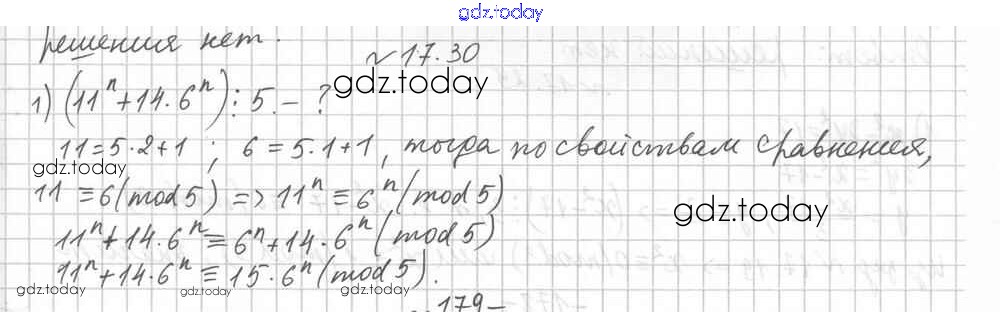 gdz.today
решения нет.
№17.30
1) (11ⁿ+14·6ⁿ)⋮5.-?
gdz.today
11=5·2+1 ; 6=5·1+1, тогда по свойствам сравнения,
gdz.today
11≡6(mod5) => 11ⁿ≡6ⁿ(mod5)
gdz.today
11ⁿ+14·6ⁿ≡6ⁿ+14·6ⁿ(mod5)
11ⁿ+14·6ⁿ≡15·6ⁿ(mod5).
gdz.today gdz.today gdz.today gdz.today
179-